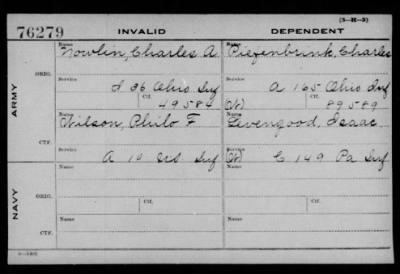 (3-H-3)
76279 INVALID DEPENDENT
ARMY
NAVY
ORIG.
Name Nowlin, Charles A Name Piefenbrink, Charles
Service Service
I 36 Ohio Inf A 165 Ohio Inf
Ctf. 49584 Ctf. 89589
CTF.
Name Wilson, Philo F Name Levengood, Isaac
Service Service
A 10 Inf C 149 Pa Inf
ORIG.
Name Name
Service Ctf. Service Ctf.
CTF.
Name Name
Service Service